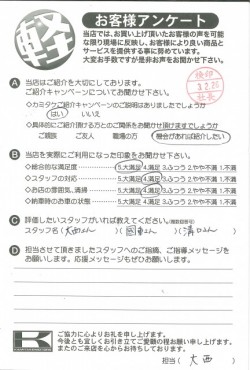 軽
お客様アンケート
当店では、お買い上げ頂いたお客様の声を可能
な限り現場に反映し、お客様により良い商品と
サービスを提供する事に努めています。
大変お手数ですが是非お声をお聞かせ下さい。
A 当店はご紹介を大切にしております。
ご紹介キャンペーンについてお聞かせ下さい。
◇カミタケご紹介キャンペーンのご説明はありましたでしょうか
はい いいえ
◇具体的にご紹介頂ける方との関係をお聞かせ頂けますでしょうか
ご親族 ご友人 職場の方 機会があれば紹介したい
B 当店を実際にご利用になった印象をお聞かせ下さい。
◇総合的な満足度 5.大満足 4.満足 3.ふつう 2.やや不満 1.不満
◇スタッフの対応 5.大満足 4.満足 3.ふつう 2.やや不満 1.不満
◇お店の雰囲気、清掃 5.大満足 4.満足 3.ふつう 2.やや不満 1.不満
◇納車時のお車の状態 5.大満足 4.満足 3.ふつう 2.やや不満 1.不満
C 評価したいスタッフがいれば教えてください。
スタッフ名( 大西さん )( )( 溝口さん )
D 担当させて頂きましたスタッフへのご指摘、ご指導メッセージを
お願いします。応援メッセージもぜひお願いします。
K
ご協力に心よりお礼を申し上げます。
今後とも宜しくお引き立てご愛顧の程お願い申し上げます。
またのご来店を心からお待ちしております。
担当( 大西 )